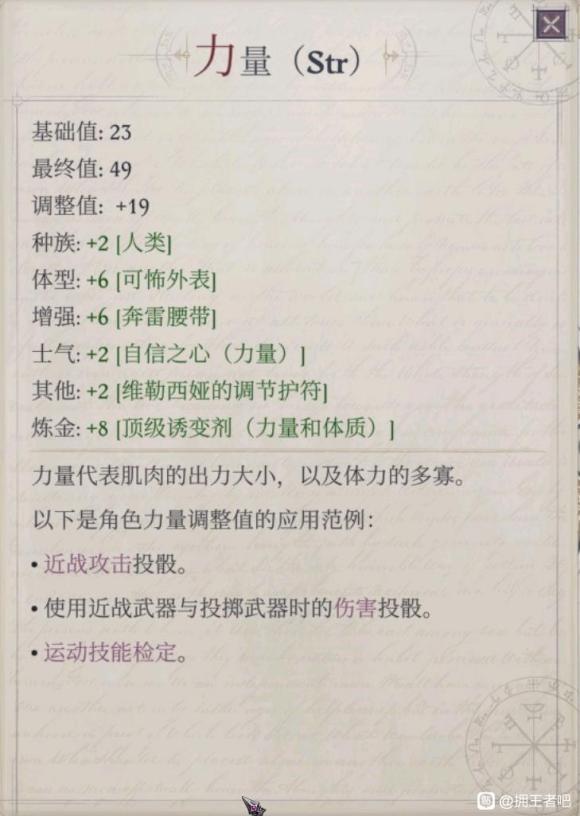 力量（Str）
基础值: 23
最终值: 49
调整值: +19
种族: +2 [人类]
体型: +6 [可怖外表]
增强: +6 [奔雷腰带]
士气: +2 [自信之心（力量）]
其他: +2 [维勒西娅的调节护符]
炼金: +8 [顶级诱变剂（力量和体质）]
力量代表肌肉的出力大小，以及体力的多寡。
以下是角色力量调整值的应用范例：
• 近战攻击投骰。
• 使用近战武器与投掷武器时的伤害投骰。
• 运动技能检定。
@拥王者吧